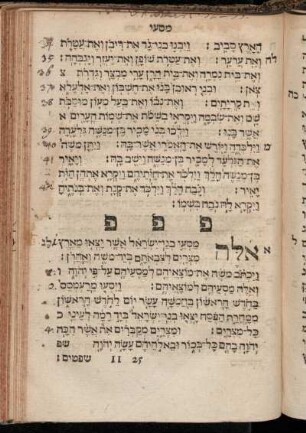 מסעי
הָאָרֶץ סָבִיב׃ וַיִּבְנוּ בְנֵי־גָד אֶת־דִּיבֹן וְאֶת־עֲטָרֹת
לה וְאֶת עֲרֹעֵר׃ וְאֶת־עַטְרֹת שׁוֹפָן וְאֶת־יַעְזֵר וְיָגְבְּהָה׃
וְאֶת־בֵּית נִמְרָה וְאֶת־בֵּית הָרָן עָרֵי מִבְצָר וְגִדְרֹת
צֹאן׃ וּבְנֵי רְאוּבֵן בָּנוּ אֶת־חֶשְׁבּוֹן וְאֶת־אֶלְעָלֵא
וְאֵת קִרְיָתָיִם׃ וְאֶת־נְבוֹ וְאֶת־בַּעַל מְעוֹן מוּסַבֹּת
שֵׁם וְאֶת־שִׂבְמָה וַיִּקְרְאוּ בְשֵׁמֹת אֶת־שְׁמוֹת הֶעָרִים
אֲשֶׁר בָּנוּ׃ וַיֵּלְכוּ בְּנֵי מָכִיר בֶּן־מְנַשֶּׁה גִּלְעָדָה
מ וַיִּלְכְּדֻהָ וַיּוֹרֶשׁ אֶת־הָאֱמֹרִי אֲשֶׁר־בָּהּ׃ וַיִּתֵּן מֹשֶׁה
אֶת־הַגִּלְעָד לְמָכִיר בֶּן־מְנַשֶּׁה וַיֵּשֶׁב בָּהּ׃ וְיָאִיר
בֶּן־מְנַשֶּׁה הָלַךְ וַיִּלְכֹּד אֶת־חַוֹּתֵיהֶם וַיִּקְרָא אֶתְהֶן חַוֹּת
יָאִיר׃ וְנֹבַח הָלַךְ וַיִּלְכֹּד אֶת־קְנָת וְאֶת־בְּנֹתֶיהָ
וַיִּקְרָא לָה נֹבַח בִּשְׁמוֹ׃
פ פ פ
א אֵלֶּה מַסְעֵי בְנֵי־יִשְׂרָאֵל אֲשֶׁר יָצְאוּ מֵאֶרֶץ לג
מִצְרַיִם לְצִבְאֹתָם בְּיַד־מֹשֶׁה וְאַהֲרֹן׃
וַיִּכְתֹּב מֹשֶׁה אֶת־מוֹצָאֵיהֶם לְמַסְעֵיהֶם עַל־פִּי יְהוָֹה
וְאֵלֶּה מַסְעֵיהֶם לְמוֹצָאֵיהֶם׃ וַיִּסְעוּ מֵרַעְמְסֵס
בַּחֹדֶשׁ הָרִאשׁוֹן בַּחֲמִשָּׁה עָשָׂר יוֹם לַחֹדֶשׁ הָרִאשׁוֹן
מִמָּחֳרַת הַפֶּסַח יָצְאוּ בְנֵי־יִשְׂרָאֵל בְּיָד רָמָה לְעֵינֵי
כָּל־מִצְרָיִם׃ וּמִצְרַיִם מְקַבְּרִים אֵת אֲשֶׁר הִכָּה
יְהוָֹה בָּהֶם כָּל־בְּכוֹר וּבֵאלֹהֵיהֶם עָשָׂה יְהוָֹה
שְׁפָטִים׃ 25 11